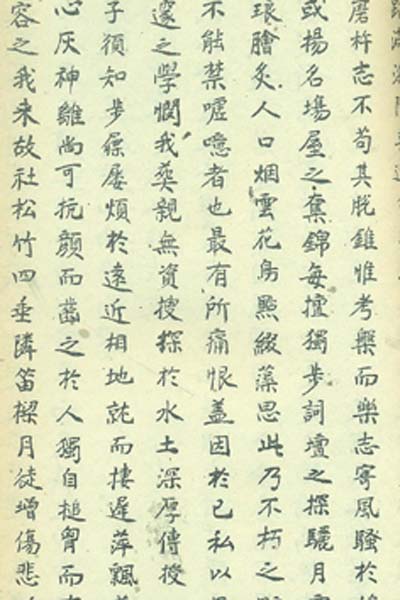 磨杵志不苟其脫錐惟考槃而樂志寄風騷於
或揚名場屋之奪錦每擅獨步詞壇之探驪月
琅膾炙人口烟雲花鳥點綴藻思此乃不朽之
不能禁噓噫者也最有所痛恨盖因於己私以
邃之學憫我葬親無資搜探於水土深厚傳授
子須知步屧屢煩於遠近相地就而捿遲萍飄
心灰神雖尚可抗顔而齒之於人獨自搥胷而
容之我未故社松竹四垂隣笛樑月徒增傷悲